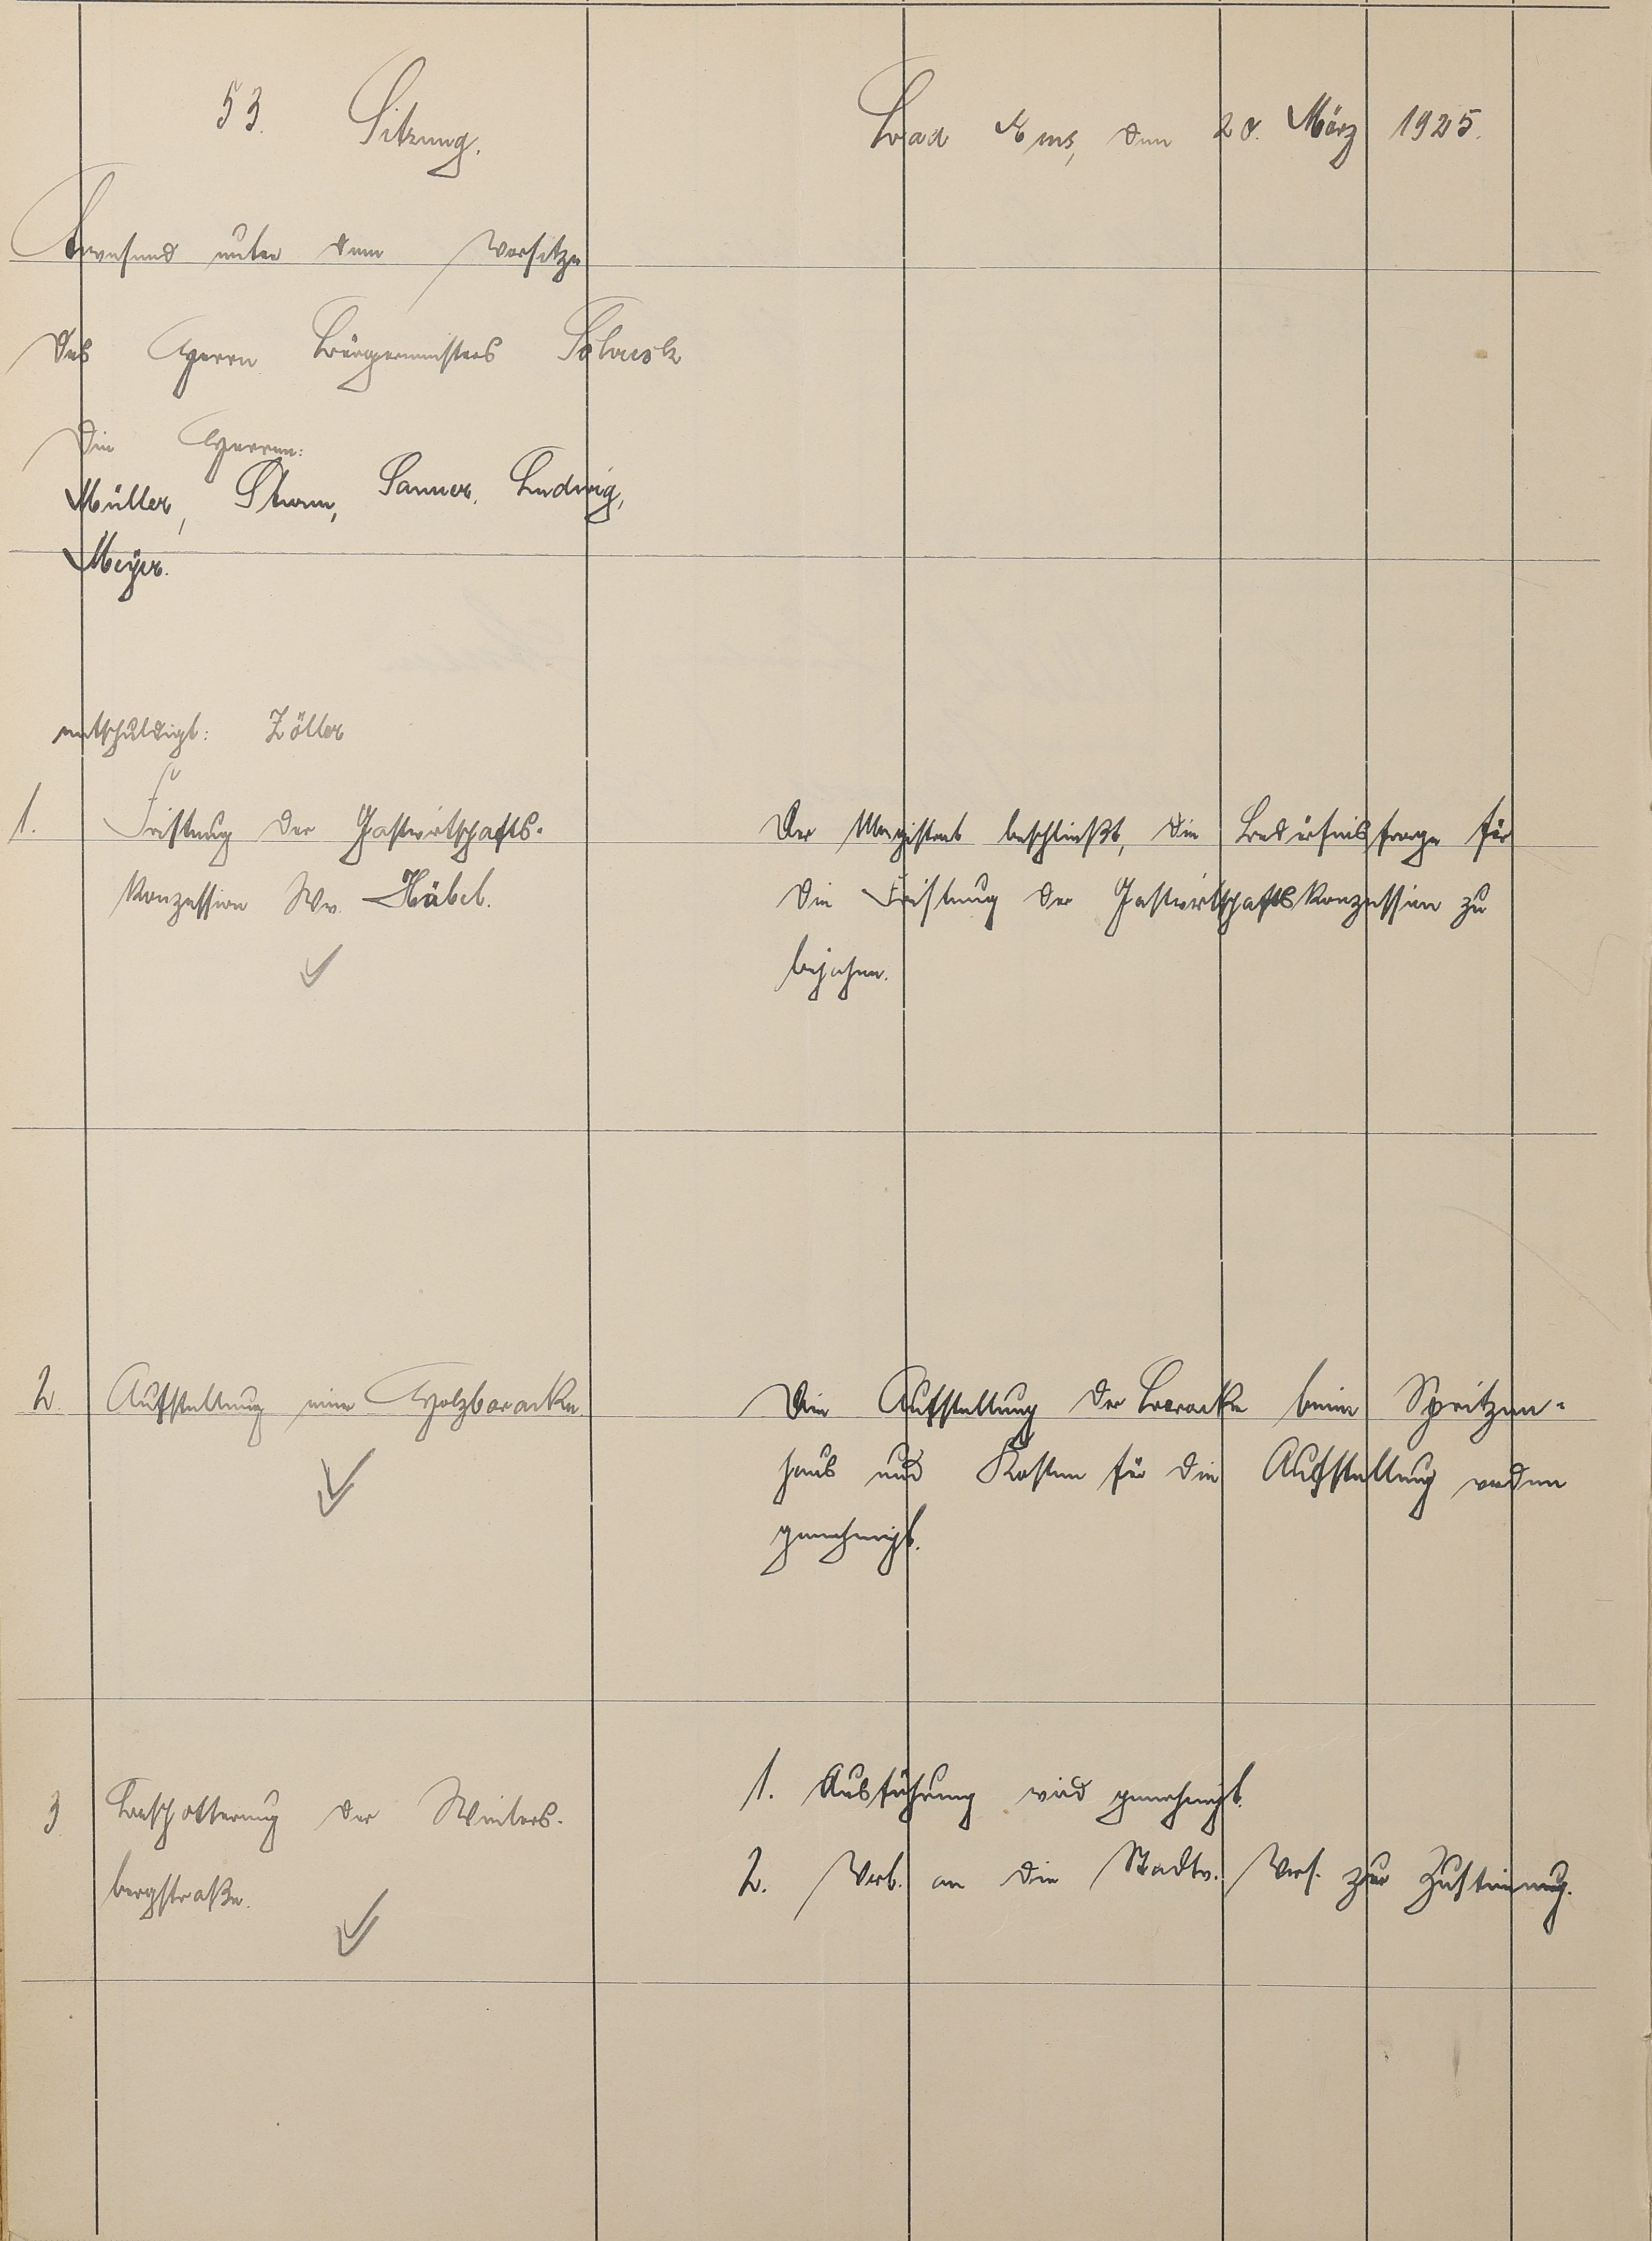 53. Sitzung.
Bad Ems, den 28. März 1925.
Anwesend unter dem Vorsitze
des Herrn Bürgermeisters
Die Herren:
Müller, Sanner, Ludwig,
Meyer.
entschuldigt: Zöller
1. Fristung der Gastwirtschafts-
konzession Ww. Häbel.
Der Magistrat beschließt, die Bedürfnisfrage für
die Fristung der Gastwirtschaftskonzession zu
bejahen.
2. Aufstellung einer Holzbaracke.
Die Aufstellung der Baracke beim Spritzen-
haus und Kosten für die Aufstellung werden
genehmigt.
3 Beschotterung der Winters-
bergstraße.
1. Ausführung wird genehmigt.
2. Vorl. an die Stadtv. Vers. zur Zustimmung.